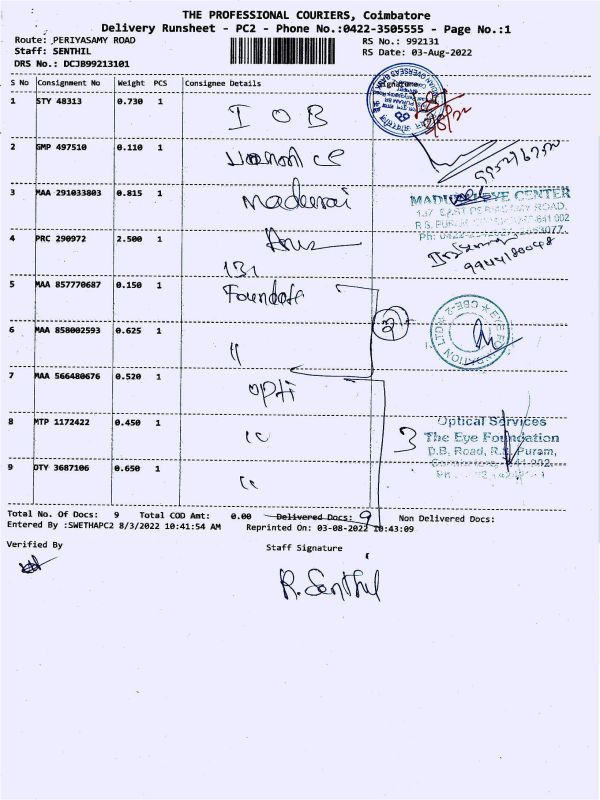 THE PROFESSIONAL COURIERS, Coimbatore
Delivery Runsheet - PC2 - Phone No.:0422-3505555 - Page No.:1
Route: PERIYASAMY ROAD RS No.: 992131
Staff: SENTHIL RS Date: 03-Aug-2022
DRS No.: DCJB99213101
S No Consignment No Weight PCS Consignee Details Signature
1 STY 48313 0.730 1 IOB
2 GMP 497510 0.110 1
3 MAA 291033803 0.815 1 Madurai
MADURAI EYE CENTER
4 PRC 290972 2.500 1
9944180048
131
5 MAA 857770687 0.150 1
6 MAA 858002593 0.625 1 "
7 MAA 566480676 0.520 1 opti
8 MTP 1172422 0.450 1 "
3
Optical Services
The Eye Foundation
D.B. Road, R.S. Puram,
9 DTY 3687106 0.650 1 "
Total No. Of Docs: 9 Total COD Amt: 0.00 Delivered Docs: 9 Non Delivered Docs:
Entered By :SWETHAPC2 8/3/2022 10:41:54 AM Reprinted On: 03-08-2022 10:43:09
Verified By Staff Signature
R. Senthil